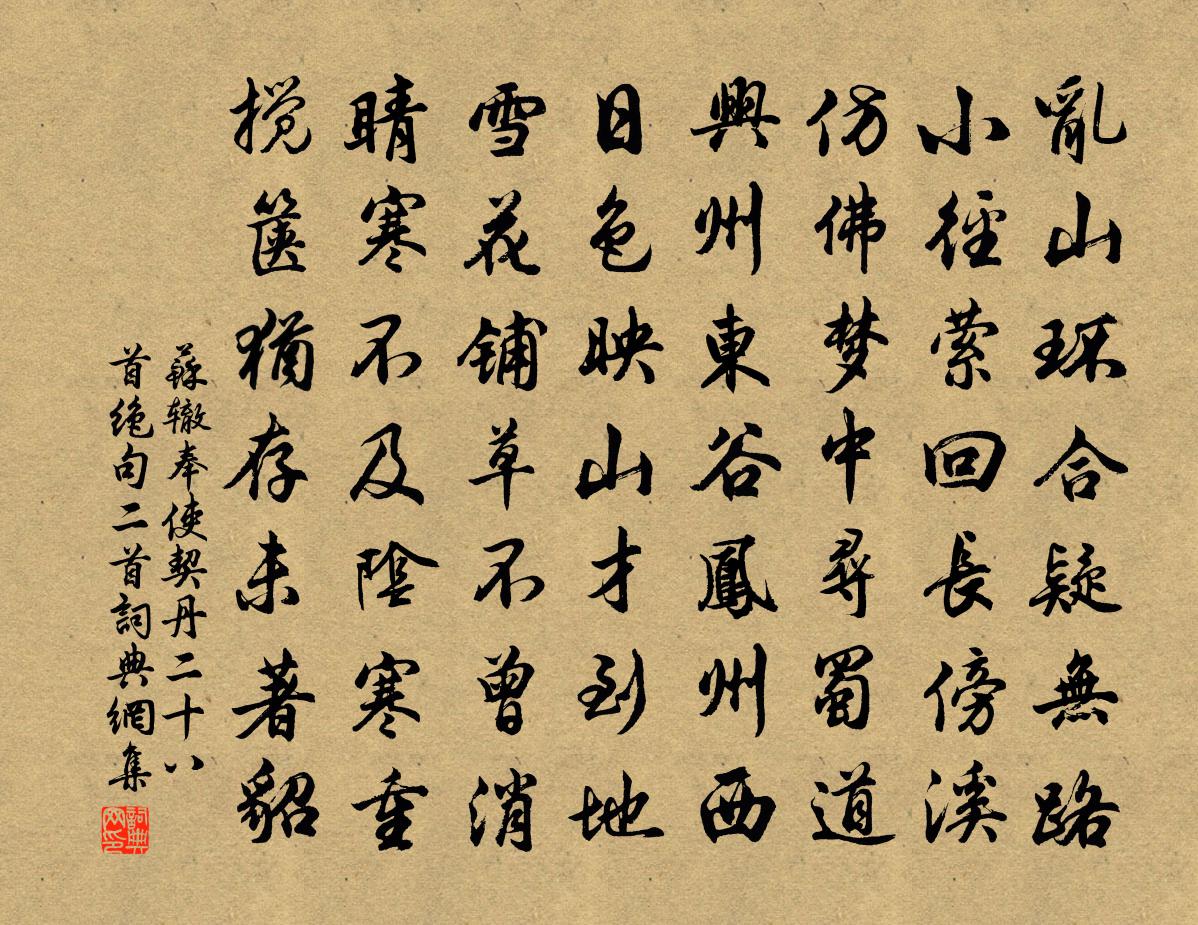 亂山环合疑無路
小徑萦回長傍溪
仿佛梦中尋蜀道
興州東谷鳳州西
日色映山才到地
雪花铺草不曾消
晴寒不及陰寒重
揽箧猶存未著貂
蘇辙奉使契丹二十八
首绝句二首詞典網集
詞典网印